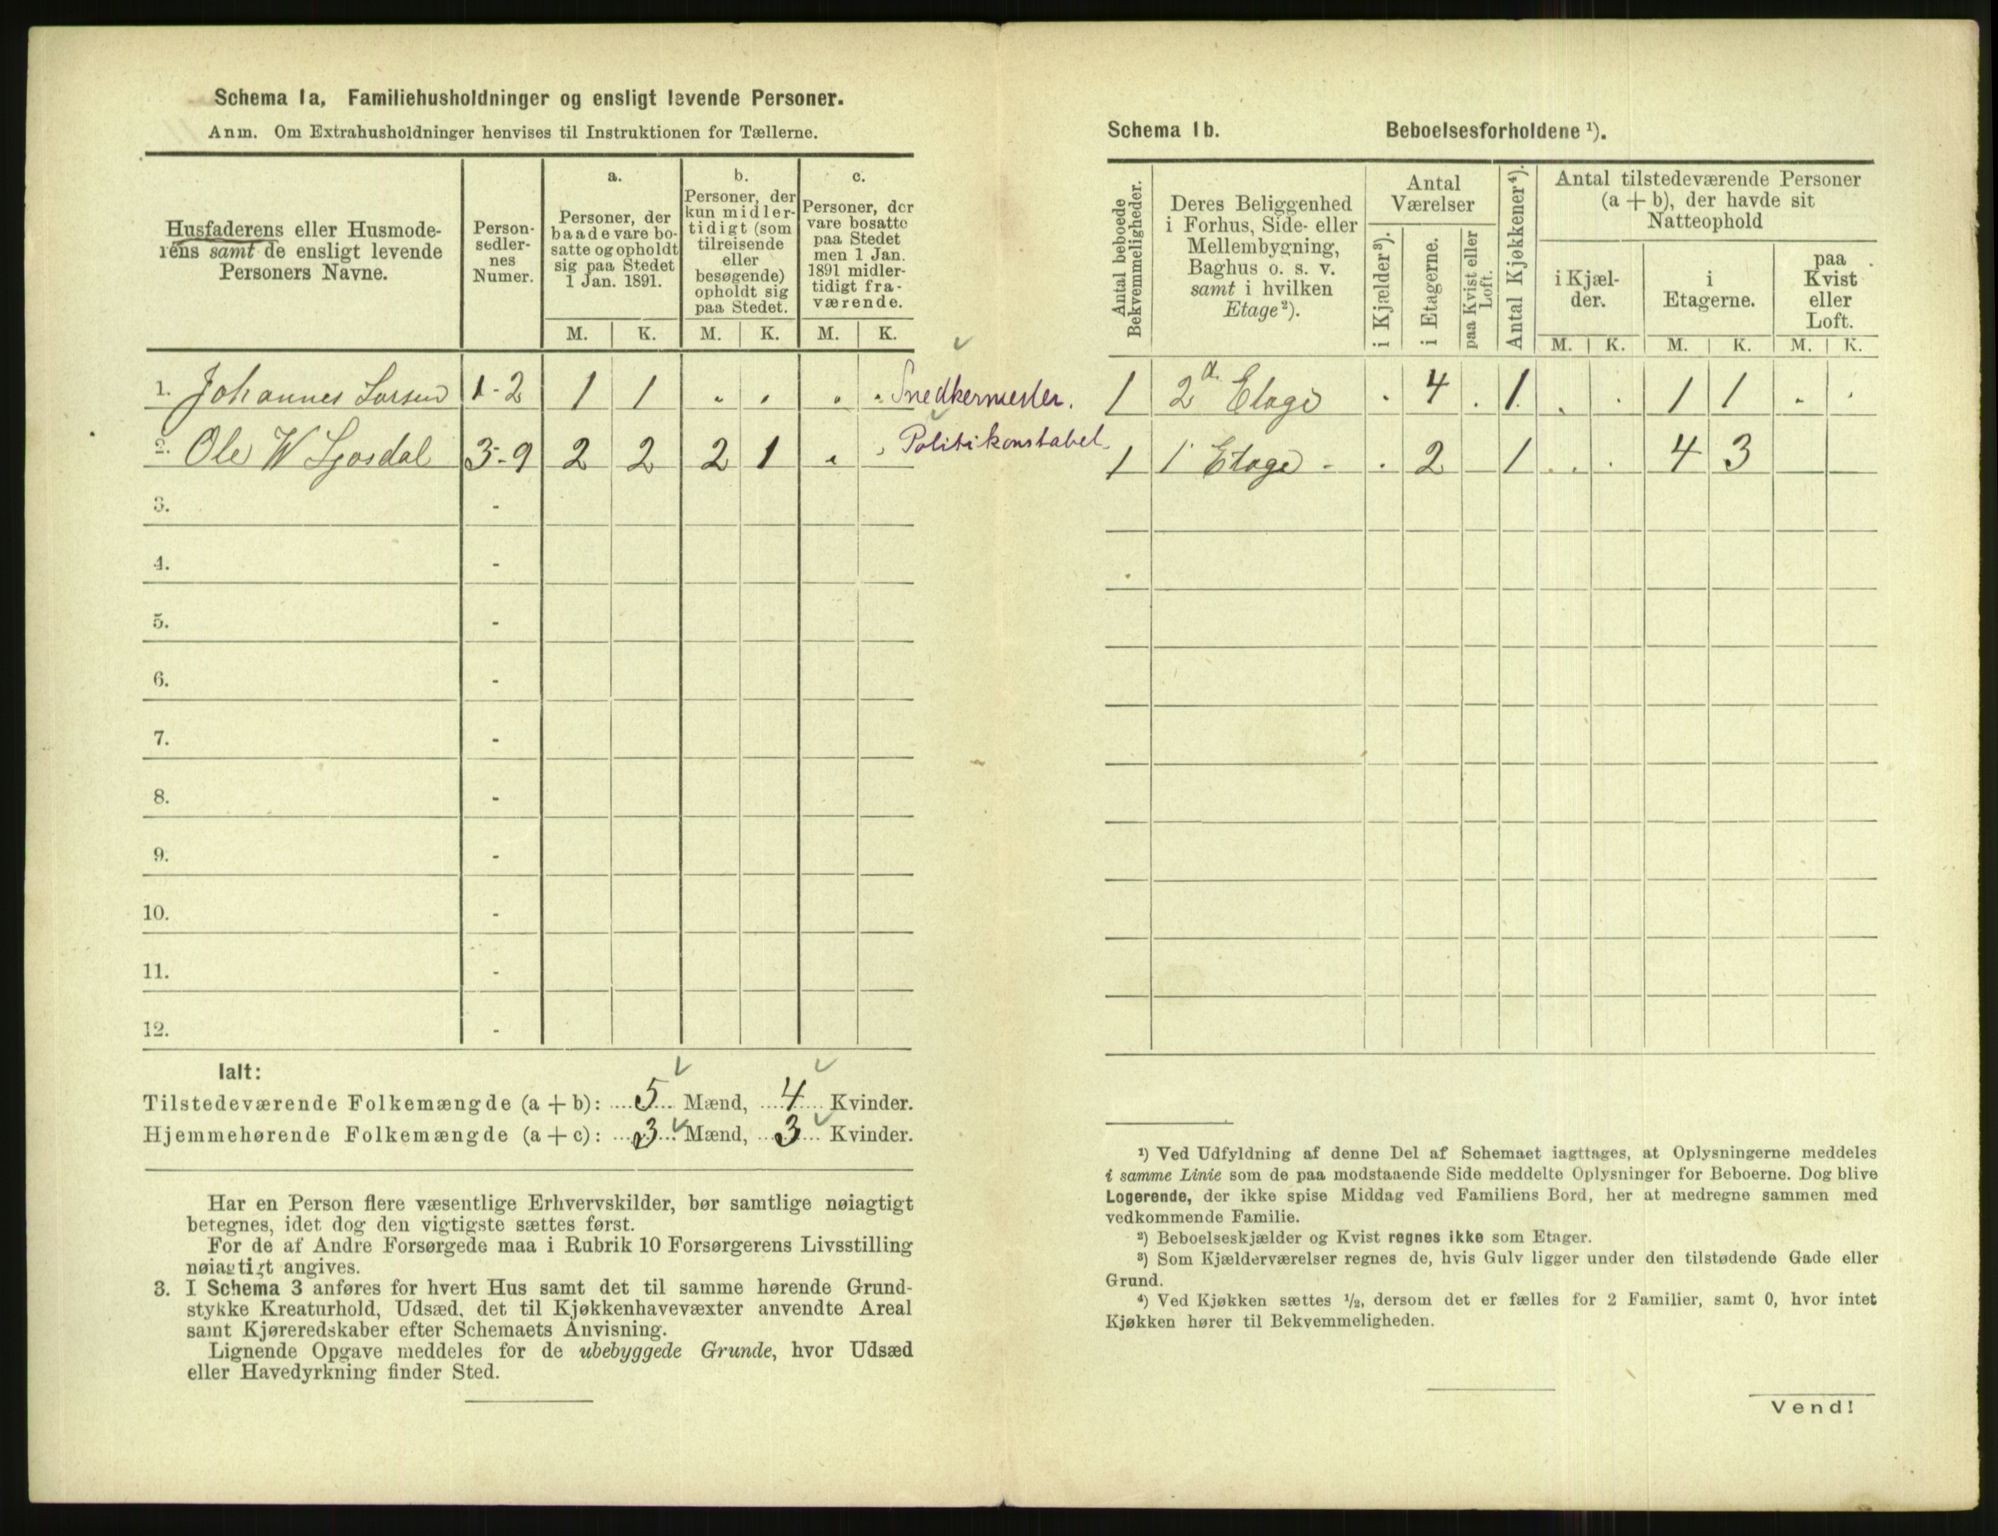 Schema 1a. Familiehusholdninger og ensligt levende Personer.
Anm. Om Extrahusholdninger henvises til Instruktionen for Tællerne.
Husfaderens eller Husmode-
rens samt de ensligt levende
Personers Navne.
Person-
sedler-
nes
Numer.
a.
Personer, der
baade vare bo-
satte og opholdt
sig paa Stedet
1 Jan. 1891.
b.
Personer, der
kun midler-
tidigt (som
tilreisende
eller
besøgende)
opholdt sig
paa Stedet.
c.
Personer, der
vare bosatte
paa Stedet
men 1 Jan.
1891 midler-
tidigt fra-
værende.
M. K. M. K. M. K.
1. Johannes Larsen 1-2 1 1 . . . . Snedkermester.
2. Ole W 3-9 2 2 2 1 . . Politikonstabel
3. -
4. -
5. -
6. -
7. -
8. -
9. -
10. -
11. -
12. -
Ialt:
Tilstedeværende Folkemængde (a + b): 5 Mænd, 4 Kvinder.
Hjemmehørende Folkemængde (a + c): 3 Mænd, 3 Kvinder.
Har en Person flere væsentlige Erhvervskilder, bør samtlige nøiagtigt
betegnes, idet dog den vigtigste sættes først.
For de af Andre Forsørgede maa i Rubrik 10 Forsørgerens Livsstilling
nøiagtigt angives.
3. I Schema 3 anføres for hvert Hus samt det til samme hørende Grund-
stykke Kreaturhold, Udsæd, det til Kjøkkenhavevæxter anvendte Areal
samt Kjøreredskaber efter Schemaets Anvisning.
Lignende Opgave meddeles for de ubebyggede Grunde, hvor Udsæd
eller Havedyrkning finder Sted.
Schema 1b. Beboelsesforholdene ¹).
Antal beboede
Bekvemmeligheder.
Deres Beliggenhed
i Forhus, Side- eller
Mellembygning,
Baghus o. s. v.
samt i hvilken
Etage²).
Antal
Værelser
i Kjælder³).
i Etagerne.
paa Kvist eller
Loft.
Antal Kjøkkener⁴).
Antal tilstedeværende Personer
(a + b), der havde sit
Natteophold
i Kjæl-
der.
i
Etagerne.
paa
Kvist
eller
Loft.
M. K. M. K. M. K.
1 2d Etage . 4 . 1 . . 1 1 . .
1 1 Etage - . 2 1 . . 4 3
¹) Ved Udfyldning af denne Del af Schemaet iagttages, at Oplysningerne meddeles
i samme Linie som de paa modstaaende Side meddelte Oplysninger for Beboerne. Dog blive
Logerende, der ikke spise Middag ved Familiens Bord, her at medregne sammen med
vedkommende Familie.
²) Beboelseskjælder og Kvist regnes ikke som Etager.
³) Som Kjælderværelser regnes de, hvis Gulv ligger under den tilstødende Gade eller
Grund.
⁴) Ved Kjøkken sættes ½, dersom det er fælles for 2 Familier, samt 0, hvor intet
Kjøkken hører til Bekvemmeligheden.
Vend!